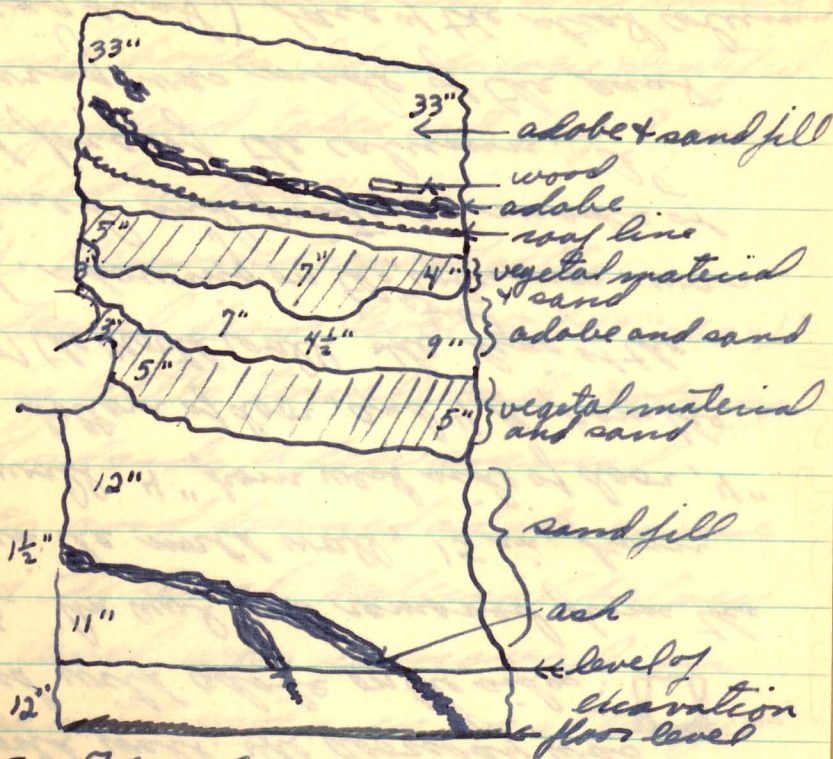 33"
33"
adobe & sand fill
wood
adobe
roof line
5"
7"
4"
vegetal material
& sand
3"
7"
4½"
9"
adobe and sand
3"
5"
5"
vegetal material
and sand
12"
sand fill
1½"
11"
ash
level of
excavation
12"
floor level